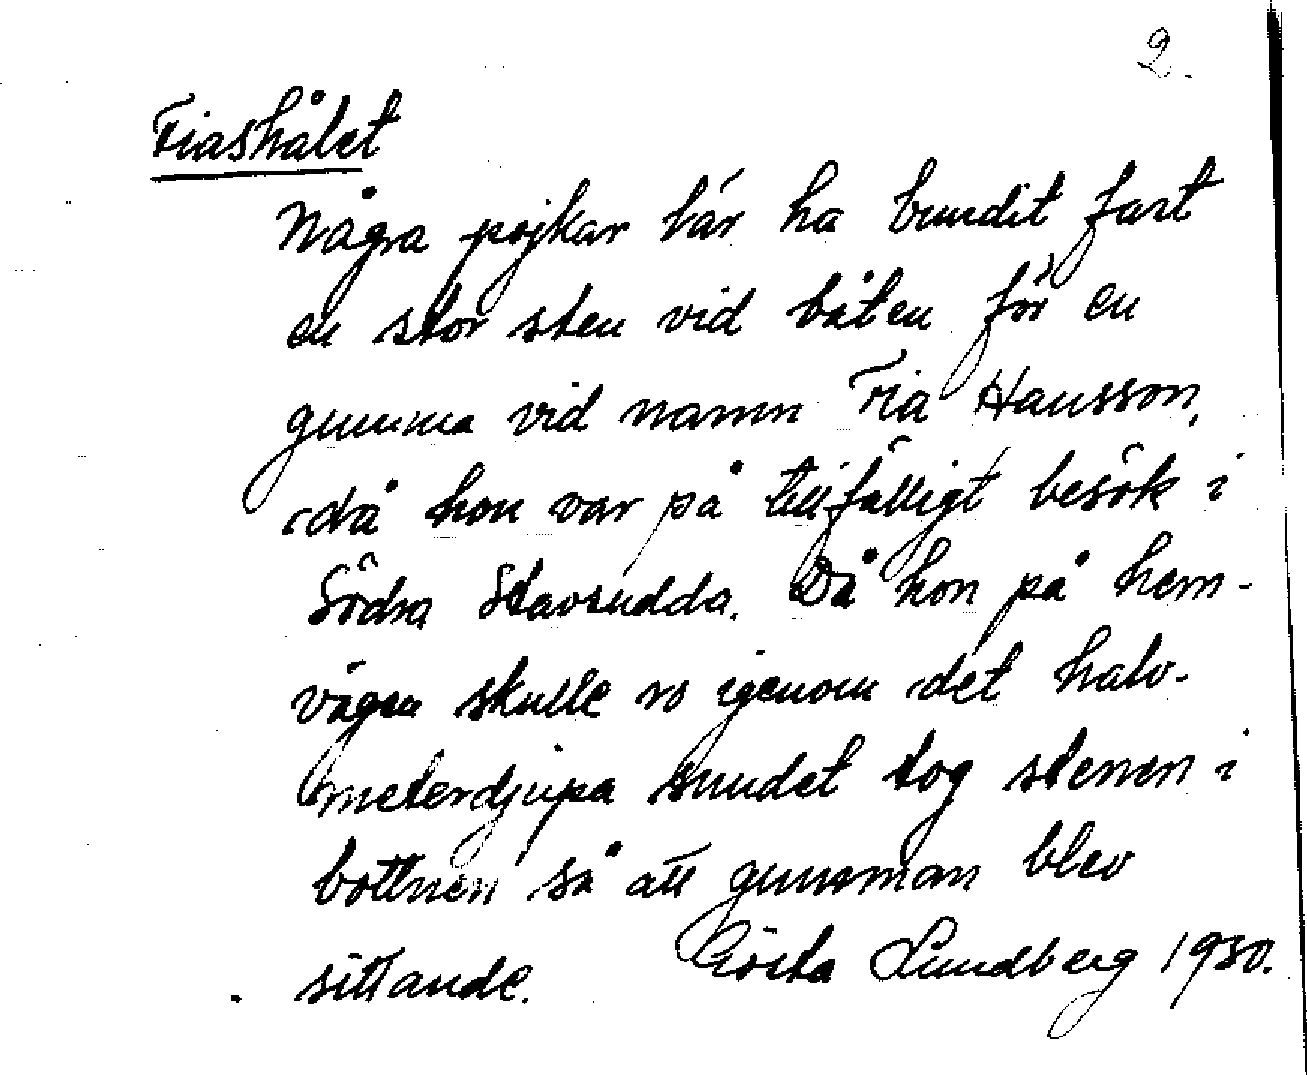 2.
Fiashålet
Några pojkar lär ha bundit fast
en stor sten vid båten för en
gumma vid namn Fia Hansson,
då hon var på tillfälligt besök i
Södra Stavsudda. Då hon på hem-
vägen skulle ro igenom det halv-
meterdjupa sundet tog stenen i
bottnen så att gumman blev
sittande. Gösta Lundberg 1930.